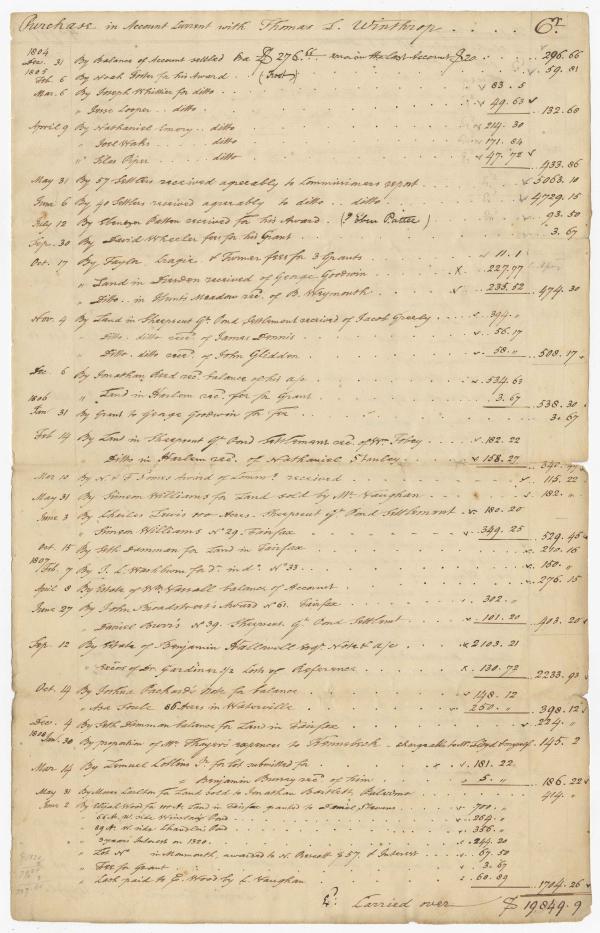 Purchase in Account Current with Thomas L. Winthrop . . . . Cr
1804
Dec. 31 By Balance of Account settled 296.66
1805
Feb. 6 By Noah for his Award 59. 81
Mar. 6 By Joseph Whittier for ditto 83. 5
" Jesse Cooper .. ditto 49. 63 132. 68
April 9 By Nathaniel Emory .. ditto 214. 30
" Joel ditto 171. 84
" Silas Piper .. ditto 47. 72 433. 86
May 31 By 57 Settlers received agreeably to Commissioners report 5063. 10
June 6 By 40 Settlers received agreeably to ditto .. ditto 4729. 15
July 12 By Ebenezer Patten received for his Award 93. 50
Sep. 30 By David Wheeler fees for his Grant 3. 67
Oct. 17 By Taylor & Turner fees for 3 Grants 11. 1
" Land in Dresden received of George Goodwin 227.77
" Ditto .. in Hunts Meadow recd. of B. Weymouth 235.52 474. 30
Nov. 4 By Land in Sheepscot Gt. Pond Settlement received of Jacob Greeley 394. "
" Ditto .. ditto recd. of James Dennis 56. 17
" Ditto . ditto recd. of John Glidden 58. " 508. 17
Dec. 6 By Jonathan Reed recd. balance of his a/c 534. 63
" Land in Harlem recd. for Grant 3. 67 538. 30
1806
Jan. 31 By Grant to George Goodwin for fee 3. 67
Feb. 14 By Land in Sheepscot Gt. Pond Settlement recd. of Wm. Tobey 182. 22
Ditto in Harlem recd. of Nathaniel Stanley 158. 27
Mar 10 By N. & T. Award of received 115. 22
May 31 By Simeon Williams for Land sold by Mr. Vaughan 182. "
June 3 By Charles Lewis 100 Acres. Sheepscot Gt. Pond Settlement 180. 20
" Simeon Williams No 29. Fairfax 349. 25 529. 45
Oct. 15 By Seth for Land in Fairfax 210. 16
1807
Feb. 7 By I. L. Washburn for do. in do. No 33 150. "
April 8 By Estate of Wm. Vassall balance of Account 276. 15
June 27 By John Award No 61. Fairfax 302. "
" Daniel Burr's No 39. Sheepscot Gt. Pond Settlemt 101. 20 403. 20
Sep. 12 By Estate of Benjamin Hallowell Esqr. Note & a/c 2103. 21
" of Dr. Gardiner 1/2 Lots of Reference 130. 72 2233. 93
Oct. 14 By Joshua Packard's Note for balance 148. 12
" Asa Soule 86 Acres in Waterville 250. " 398. 12
Dec. 4 By Seth balance for Land in Fairfax 224. "
1808
Jan. 30 By proportion of Mr. Thayer's expences to Kennebeck 145. 2
Mar. 14 By Lemuel for submitted fee 181. 22
" Benjamin recd. of him 5. " 186. 22
May 31 By Moses Carlton for Land sold to Jonathan Bartlett, 414. "
June 2 By Elijah Wood for Wt. A. Land in Fairfax granted to Daniel Stevens 700. "
" 66 A. W. side Pond 264. "
" 89 A. W. side Pond 356. "
" 3 years Interest on 1320. 244.20
" Lot No in Monmouth, awarded to N. $57. & Interest 67. 50
" Fee for Grant 3. 67
" Cash paid to E. Wood by C. Vaughan 60. 89 1704. 26
Carried over $ 19849. 9